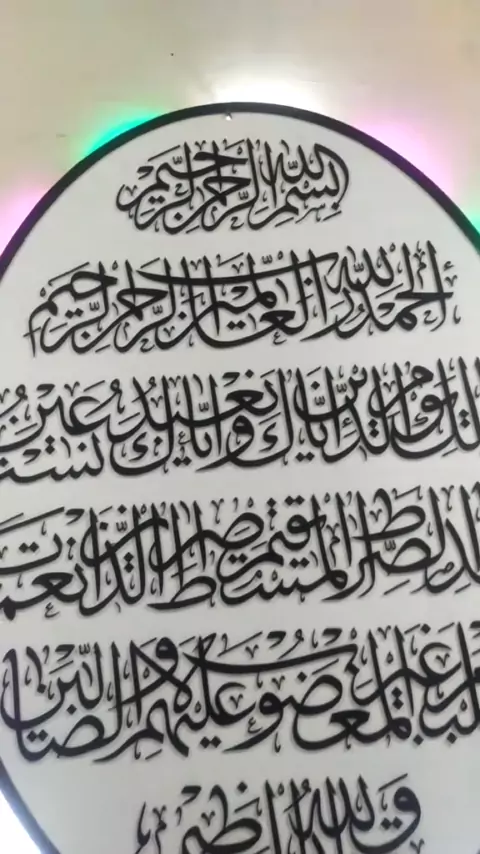 بسم الله الرحمن الرحيم
الحمد لله رب العالمين الرحمن الرحيم
يوم الدين إياك نعبد وإياك نستعين
الصراط المستقيم صراط الذين أنعمت
غير المغضوب عليهم ولا الضالين
الله